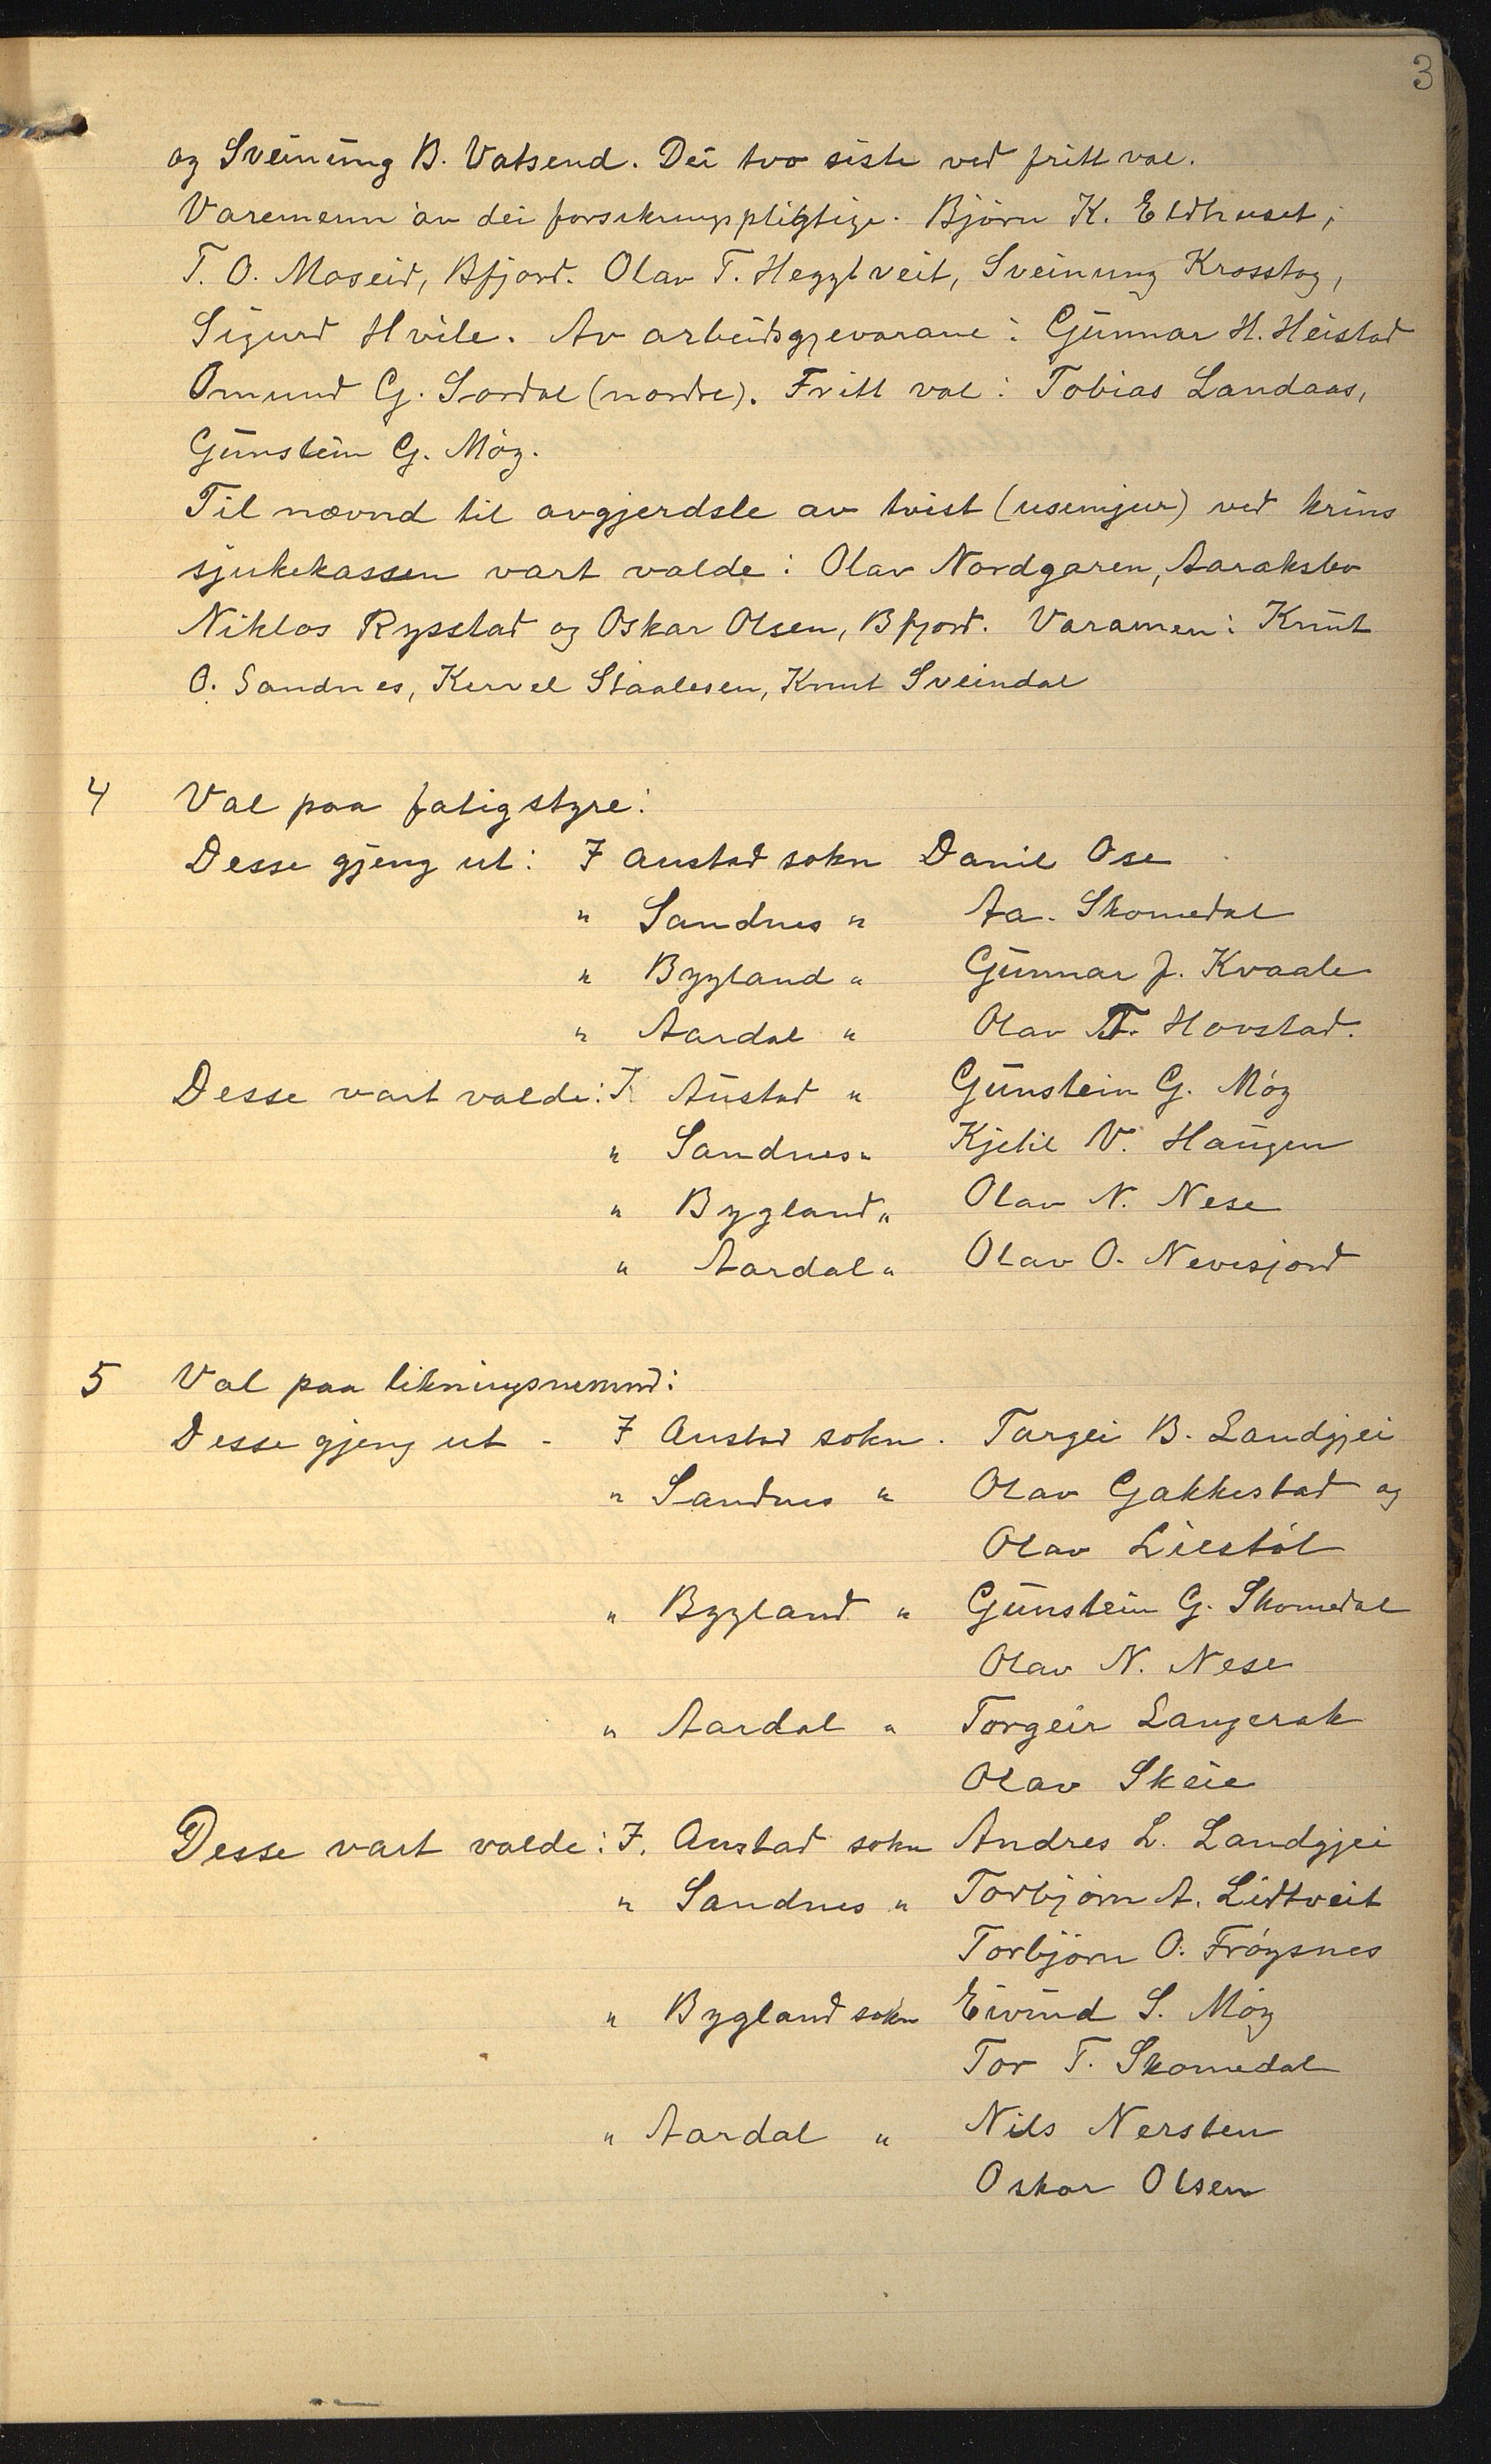 3
og Sveinung B. Vatsend. Dei tvo siste ved fritt val.
Varemenn av dei forsikringspligtige. Björn K. Eldhuset,
T. O. Moseid, Bfjord. Olav T. Heggtveit, Sveinung Krosstøg,
Sigurd Hvile. Av arbeidsgjevarane: Gunnar H. Heistad
Omund G. Sordal (nordre). Fritt val: Tobias Landaas,
Gunstein G. Møy.
Til nævnd til avgjerdsle av tvist (usemjur) ved krins
sjukekassen vart valde: Olav Nordgaren, Aarakslev
Niklos Rysstad og Oskar Olsen, Bfjord. Varamen: Knut
O. Sandnes, Kervel Staalesen, Knut Sveindal
4 Val paa fatigstyre:
Desse gjeng ut: I Austad sokn Danil Ose
" Sandnes " Aa. Skomedal
" Bygland " Gunnar J. Kvaale
" Aardal " Olav T. Hovstad.
Desse vart valde: I Austad " Gunstein G. Møy
" Sandnes " Kjetil V. Haugen
" Bygland " Olav N. Nese
" Aardal " Olav O. Nevesjord
5 Val paa likningsnemnd:
Desse gjeng ut - I Austad sokn. Targei B. Landgjei
" Sandnes " Olav Gakkestad og
Olav Liestøl
" Bygland " Gunstein G. Skomedal
Olav N. Nese
" Aardal " Torgeir Langerak
Olav Skeie
Desse vart valde: I. Austad sokn Andres L. Landgjei
" Sandnes " Torbjørn A. Lidtveit
Torbjørn O. Frøysnes
" Bygland sokn Eivind S. Møy
Tor T. Skomedal
" Aardal " Nils Nersten
Oskar Olsen